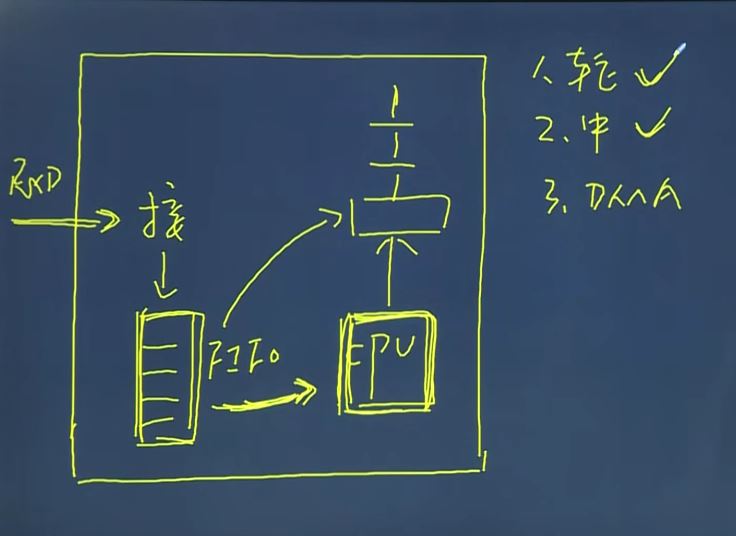 RXD
接
FIFO
CPU
1、轮 ✓
2、中 ✓
3、DMA